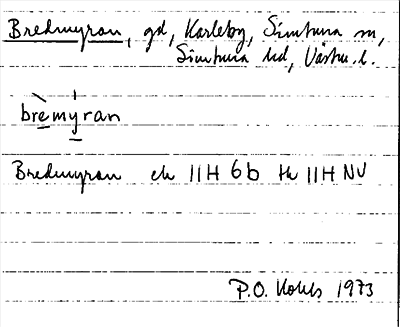 Bredmyran, gd, Karleby, Simtuna sn,
Simtuna hd, Västm. l.
brèmyran
Bredmyran ek 11H 6b tk 11H NV
P.O. 1973